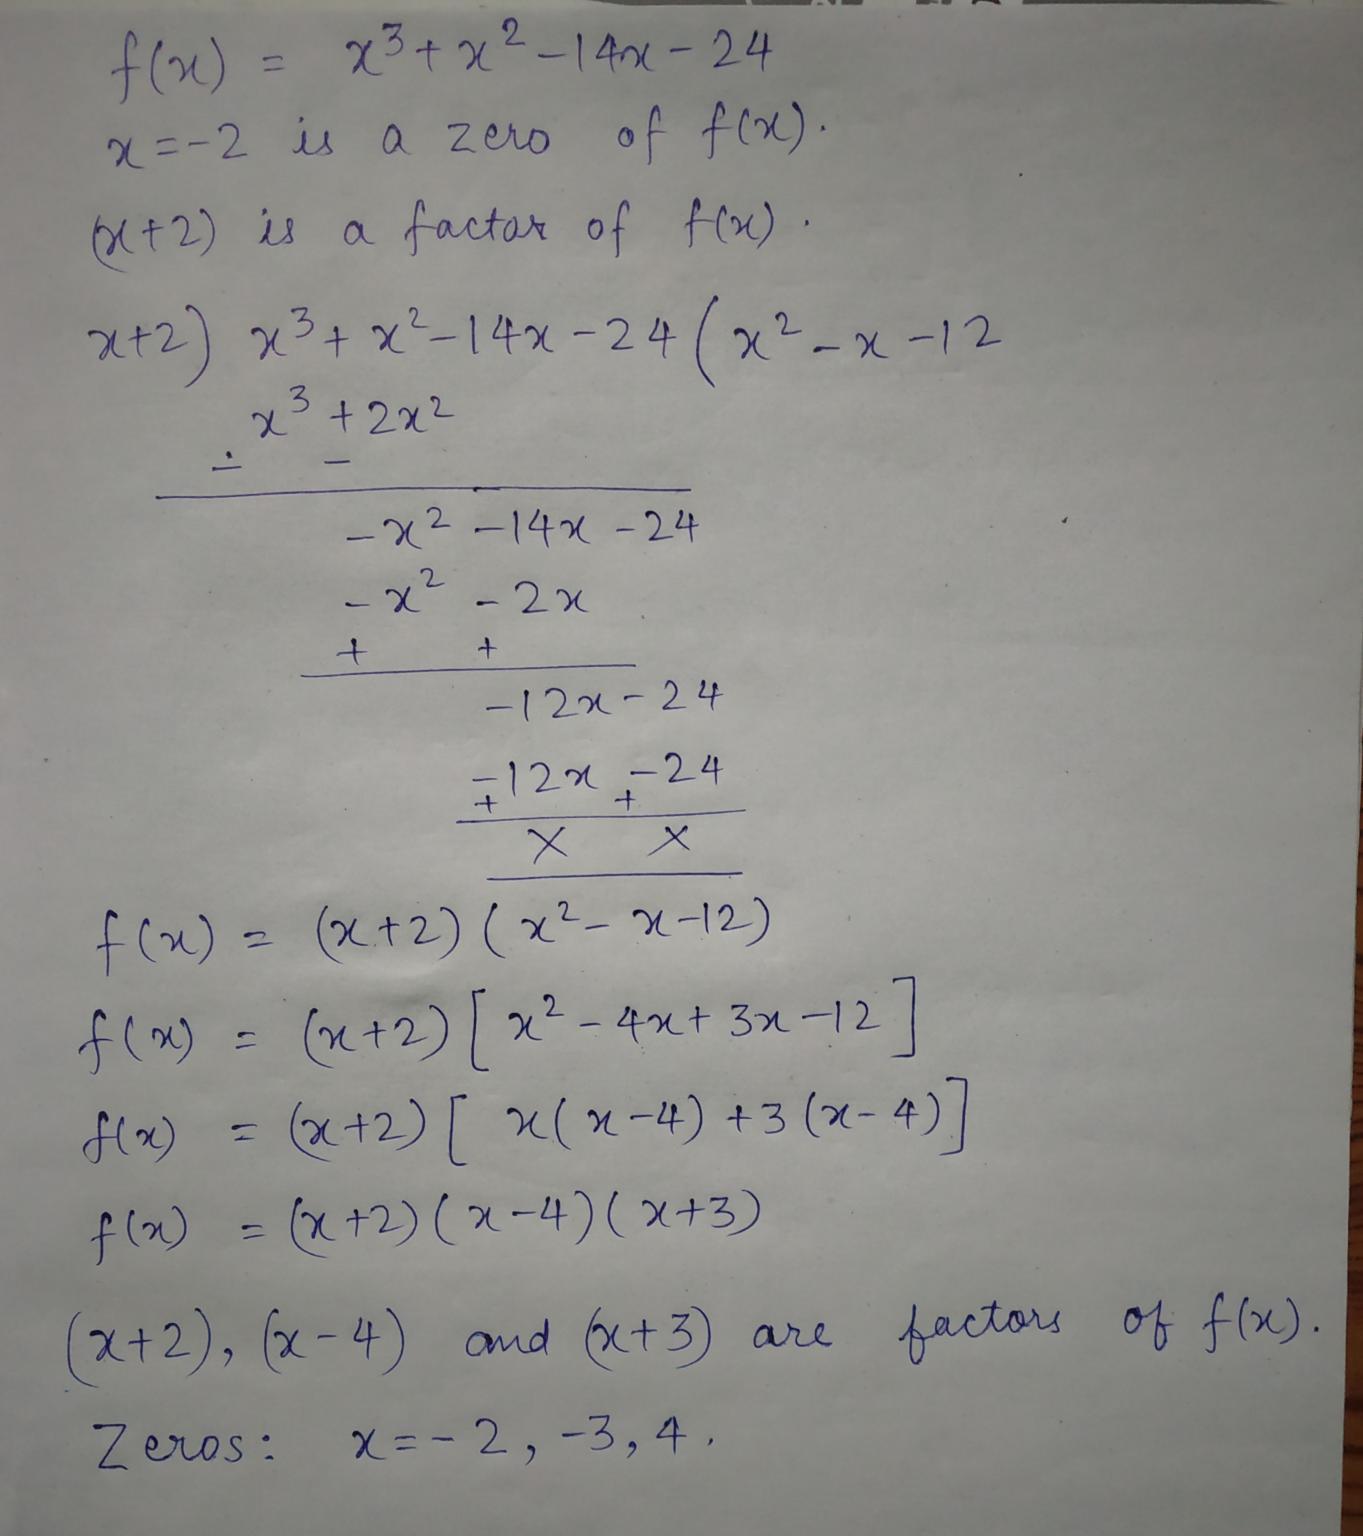 f(x) = x³ + x² - 14x - 24
x = -2 is a zero of f(x).
(x+2) is a factor of f(x).
x+2) x³ + x² - 14x - 24 ( x² - x - 12
x³ + 2x²
- -
-x² - 14x - 24
-x² - 2x
+ +
-12x - 24
-12x - 24
+ +
× ×
f(x) = (x+2) (x² - x - 12)
f(x) = (x+2) [ x² - 4x + 3x - 12 ]
f(x) = (x+2) [ x(x-4) + 3(x-4) ]
f(x) = (x+2) (x-4) (x+3)
(x+2), (x-4) and (x+3) are factors of f(x).
Zeros: x = -2, -3, 4.